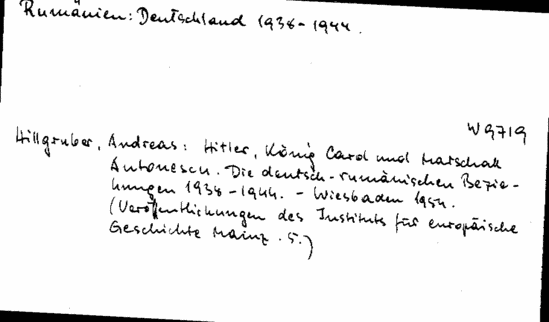 Rumänien: Deutschland 1938-1944.
W 9719
Hillgruber, Andreas: Hitler, König Carol und Marschall
Antonescu. Die deutsch-rumänischen Bezie-
hungen 1938-1944. - Wiesbaden 1954.
(Veröffentlichungen des Instituts für europäische
Geschichte Mainz. 5.)